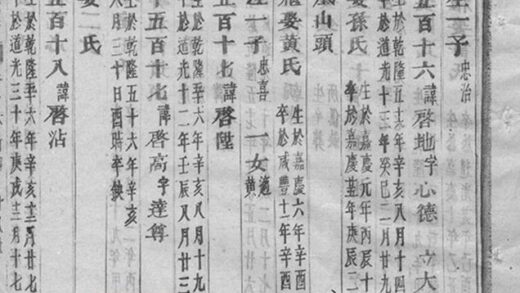 生一子 忠治
五百十六 諱啓地字心德 立大
生於乾隆五六年辛亥八月十四
於道光十三年癸巳二月
孫氏 生於嘉慶元年丙辰十
卒於嘉慶 年庚辰二
山頭
娶黃氏 生於嘉慶六年辛酉
卒於咸豐十一年辛酉
生一子 忠喜 一女 適黃
五百十七 諱啓陞
生於乾隆五六年辛亥八月十九
於道光十二年壬辰八月廿三
五百十七 諱啓高字達尊
生於乾隆五十六年辛亥
八月三十日酉時卒缺
二氏
五百十八 諱啓沾
於乾隆 六年辛亥 月十七
於道光三十年庚戌 月十七